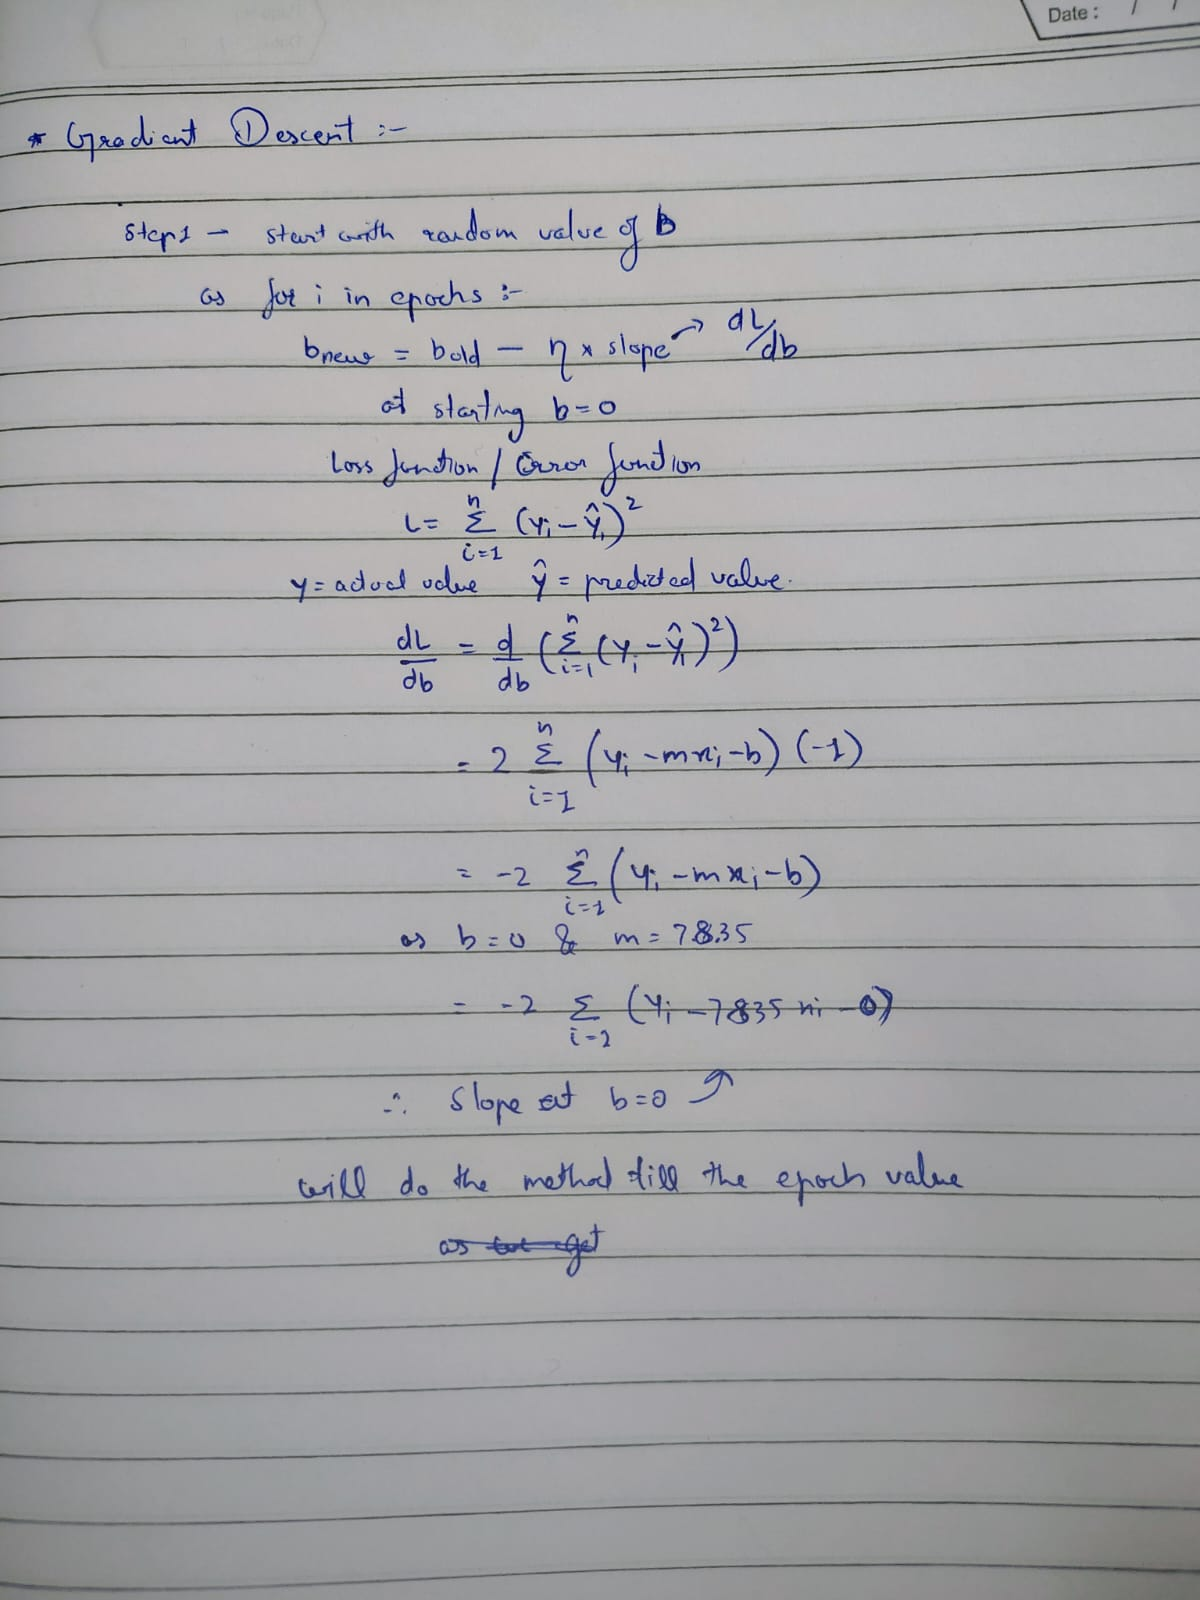 Date : / /
* Gradient Descent :-
Step1 - start with random value of b
as for i in epochs :-
bnew = bold - η x slope → dL/db
at starting b=0
Loss function / Error function
L = n Σ i=1 (yi - ŷi)²
y = actual value ŷ = predicted value.
dL/db = d/db (n Σ i=1 (yi - ŷi)²)
= 2 n Σ i=1 (yi - mxi - b) (-1)
= -2 n Σ i=1 (yi - mxi - b)
as b=0 & m = 78.35
= -2 Σ i=1 (yi - 7835 xi - 0)
∴ Slope at b=0
will do the method till the epoch value